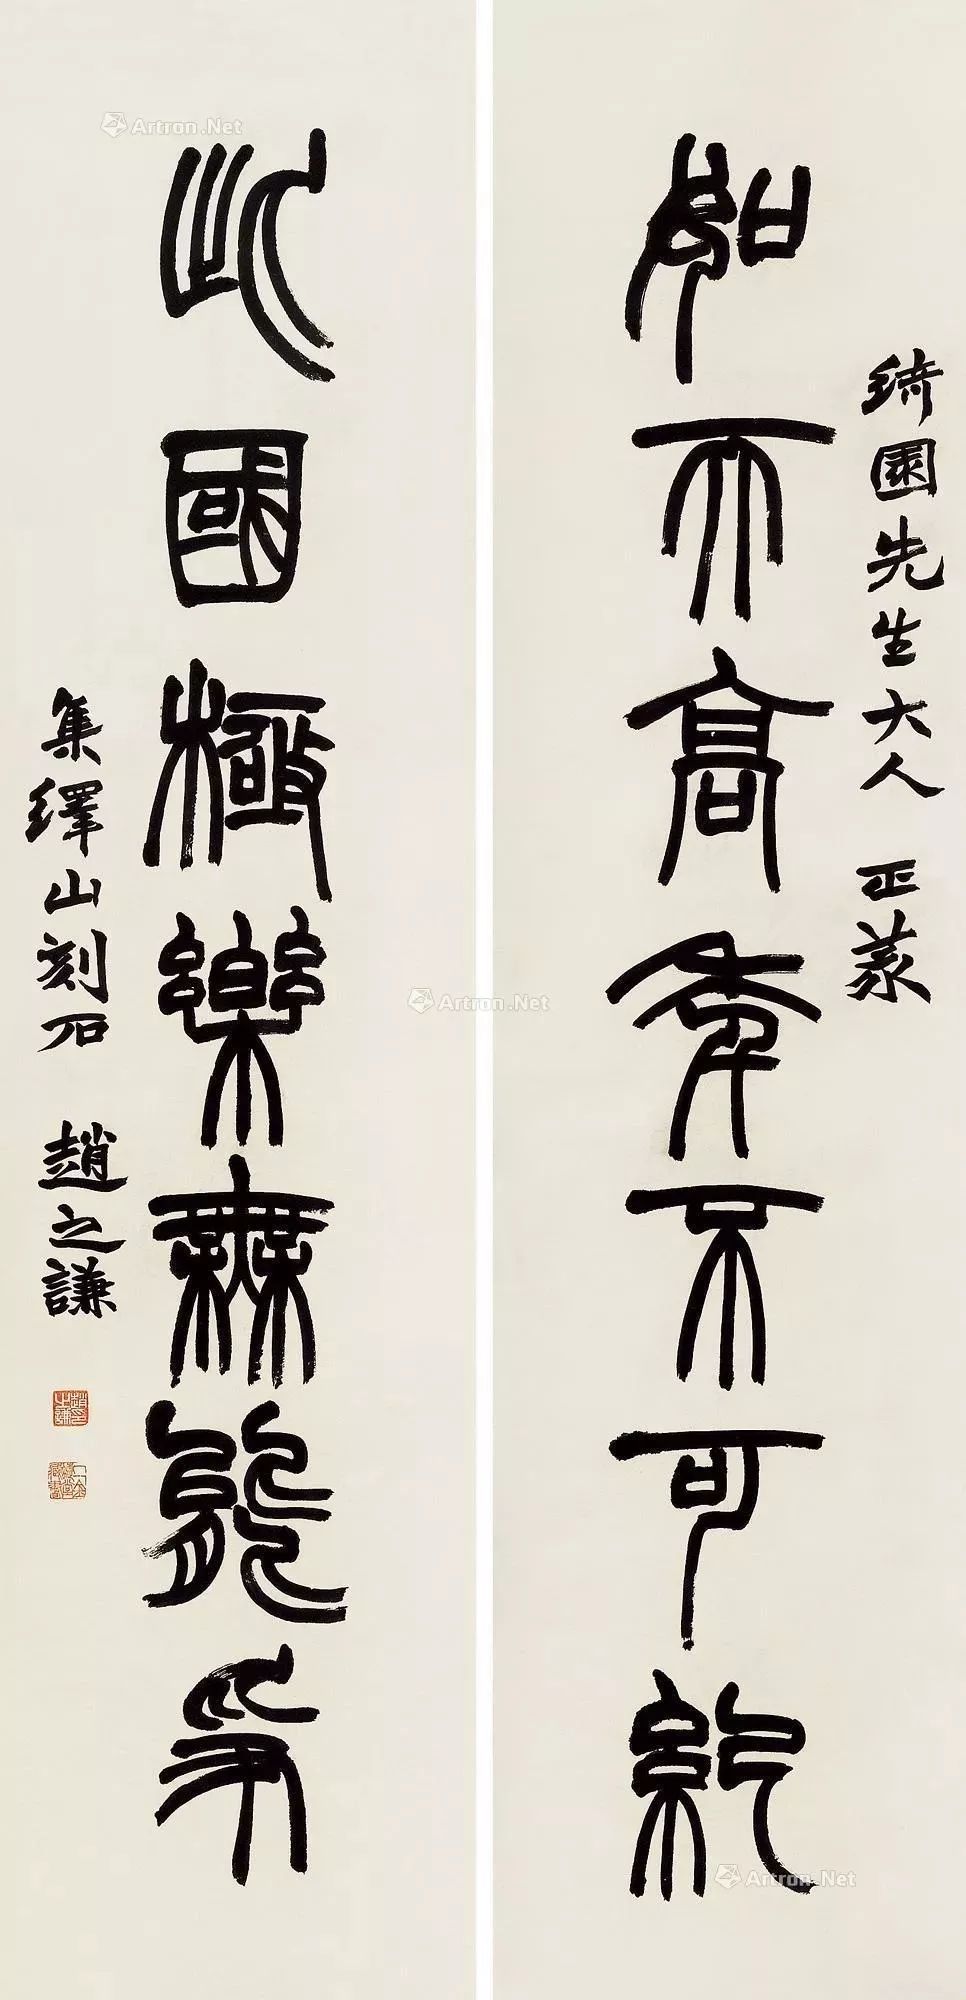 綺園先生大人 正篆
如天高年不可紀
此國極樂無能為
集繹山刻石 趙之謙
趙之謙印
Artron.Net
Artron.Net
Artron.Net